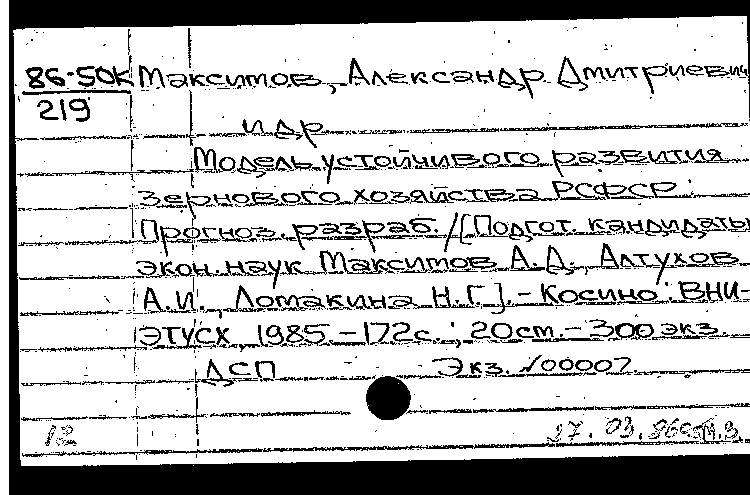 86-50К Максимов, Александр Дмитриевич
219
и др
Модель устойчивого развития
зернового хозяйства РСФСР:
Прогноз. разраб. /[Подгот. кандидаты
экон. наук Максимов А.Д., Алтухов
А.И., Ломакина Н.Г.]. - Косино: ВНИ-
ЭТУСХ, 1985. - 172с.; 20см. - 300 экз.
ДСП Экз. №00007
12 27. 03. 86